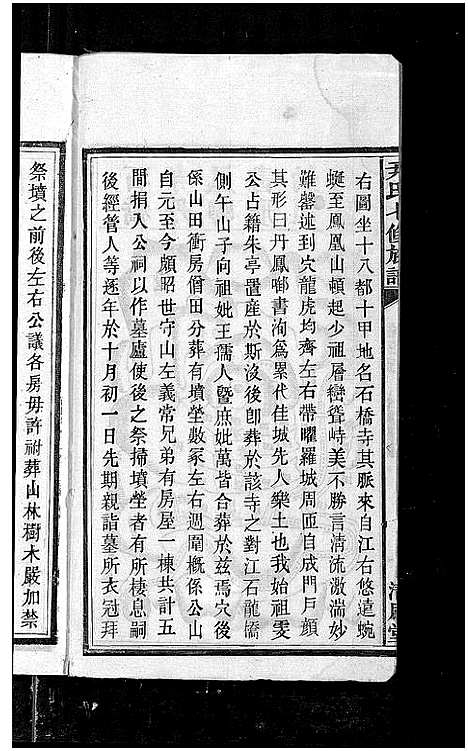 尹氏七修族譜
右圖坐十八都十甲地名石橋寺其脈來自江右悠遠蜿
蜒至鳳凰山頓起少祖層巒聳峙美不勝言清流激湍妙
難罄述到穴龍虎均齊左右帶曜羅城周匝自成門戶顏
其形曰丹鳳啣書洵爲累代佳城先人樂土也我始祖雯
公占籍朱亭置產於斯沒後卽葬於該寺之對江石龍橋
側午山子向祖妣王孺人暨庶妣萬皆合葬於茲焉穴後
係山田衝房僧田分葬有墳塋數冢左右週圍概係公山
自元至今頗昭世守山左義常兄弟有房屋一棟共計五
間捐入公祠以作墓廬使後之祭掃墳塋者有所棲息嗣
後經管人等逐年於十月初一日先期親詣墓所衣冠拜
祭墳之前後左右公議各房毋許祔葬山林樹木嚴加禁